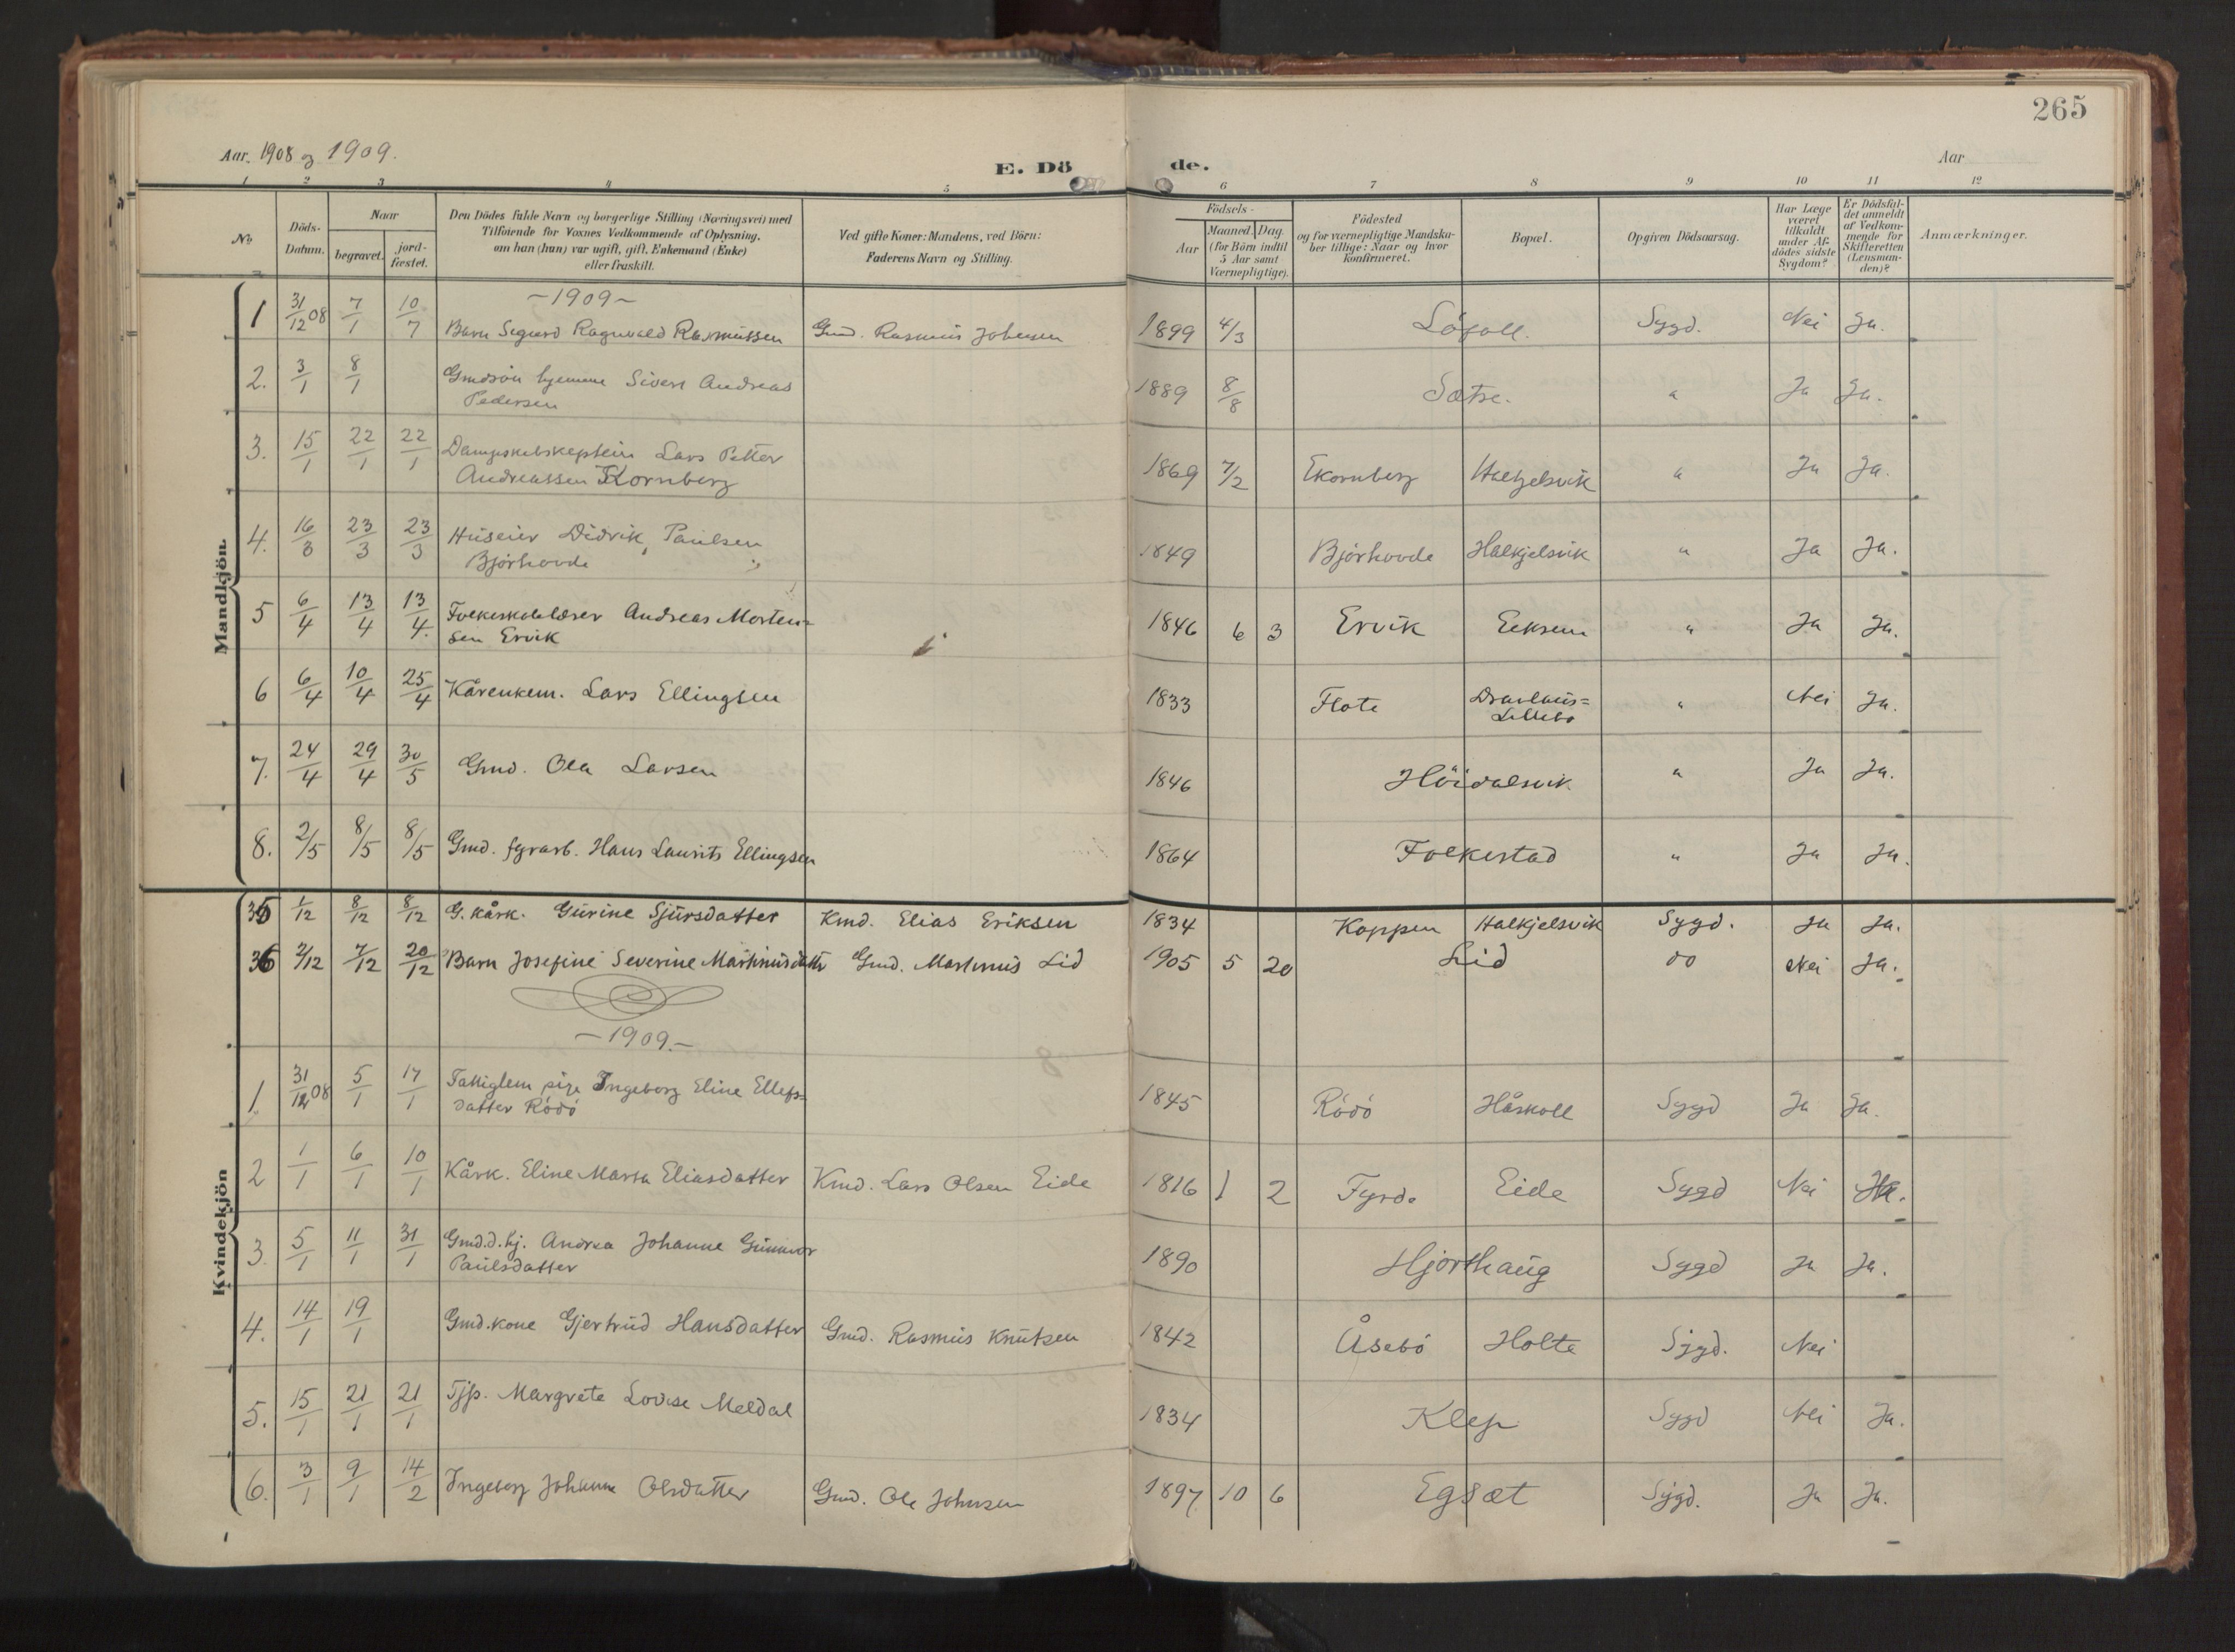 265
Aar. 1908 og 1909.
E. Dö de.
Aar
1 2 3 4 5 6 7 8 9 10 11 12
No
Döds-Datum.
Naar
begravet.
jord-fæstet.
Den Dödes fulde Navn og borgerlige Stilling (Næringsvei) med
Tilföiende for Voxnes Vedkommende af Oplysning,
om han (hun) var ugift, gift, Enkemand (Enke)
eller fraskilt.
Ved gifte Koner: Mandens, ved Börn:
Faderens Navn og Stilling.
Födsels-
Aar
Maaned. Dag.
(for Börn indtil
5 Aar samt
Værnepligtige).
Födested
og for værnepligtige Mandska-
ber tillige: Naar og hvor
konfirmeret.
Bopæl.
Opgiven Dödsaarsag.
Har Læge
været
tilkaldt
under Af-
dödes sidste
Sygdom?
Er Dödsfal-
det anmeldt
af Vedkom-
mende for
Skifteretten
(Lensman-
den)?
Anmærkninger.
Mandkjön.
-1909-
1 31/12 08 7/1 10/7 Barn Sigurd Ragnvald Rasmussen Gmd. Rasmus Johnsen 1899 4/3 Löfoll. Sygd. Nei Ja.
2. 3/1 8/1 Gmdsön hjemme Sivert Andreas
Pedersen 1889 8/8 Sætre. " Ja Ja.
3. 15/1 22/1 22/1 Dampskibskaptein Lars Petter
Andreassen Ekornberg 1869 7/2 Ekornberg Halkjelsvik " Ja Ja.
4. 16/3 23/3 23/3 Huseier Didrik Paulsen
Björhovde 1849 Björhovde Halkjelsvik " Ja Ja.
5 6/4 13/4 13/4. Folkeskolelærer Andreas Morten=
sen Ervik 1846 6 3 Ervik Eeksem " Ja Ja.
6 6/4 10/4 25/4 Kårenkem. Lars Ellingsen 1833 Flote Dravlaus=
Lillebö " Nei Ja.
7. 24/4 29/4 30/5 Gmd. Ola Larsen 1846 Höidalsvik " Ja Ja.
8. 2/5 8/5 8/5 Gmd. fyrarb. Hans Laurits Ellingsen 1864 Folkestad " Ja Ja.
Kvindekjön
35 1/12 8/12 8/12 G. kårk. Gurine Sjursdatter Kmd. Elias Eriksen 1834 Koppen Halkjelsvik Sygd. Ja Ja.
36 2/12 7/12 20/12 Barn Josefine Severine Martinusdattr Gmd. Martinus Lid 1905 5 20 Lid do Nei Ja.
-1909.-
1 31/12 08 5/1 17/1 Fattiglem pige Ingeborg Eline Ellefs-
datter Rödö 1845 Rödö Håskoll Sygd Ja Ja.
2 1/1 6/1 10/1 Kårk. Eline Marta Eliasdatter Kmd. Lars Olsen Eide 1816 1 2 Fyrde Eide Sygd Nei Ja.
3. 5/1 11/1 31/1 Gmd.d. hj. Andrea Johanne Gunnor
Paulsdatter 1890 Hjorthaug Sygd Ja Ja.
4. 14/1 19/1 Gmd.kone Gjertrud Hansdatter Gmd. Rasmus Knutsen 1842 Åsebö Holte Sygd. Nei
5. 15/1 21/1 21/1 Tjp. Margrete Lovise Meldal 1834 Klep Sygd Nei Ja.
6. 3/1 9/1 14/2 Ingeborg Johanne Olsdatter Gmd. Ole Johnsen 1897 10 6 Egset Sygd. Ja Ja.